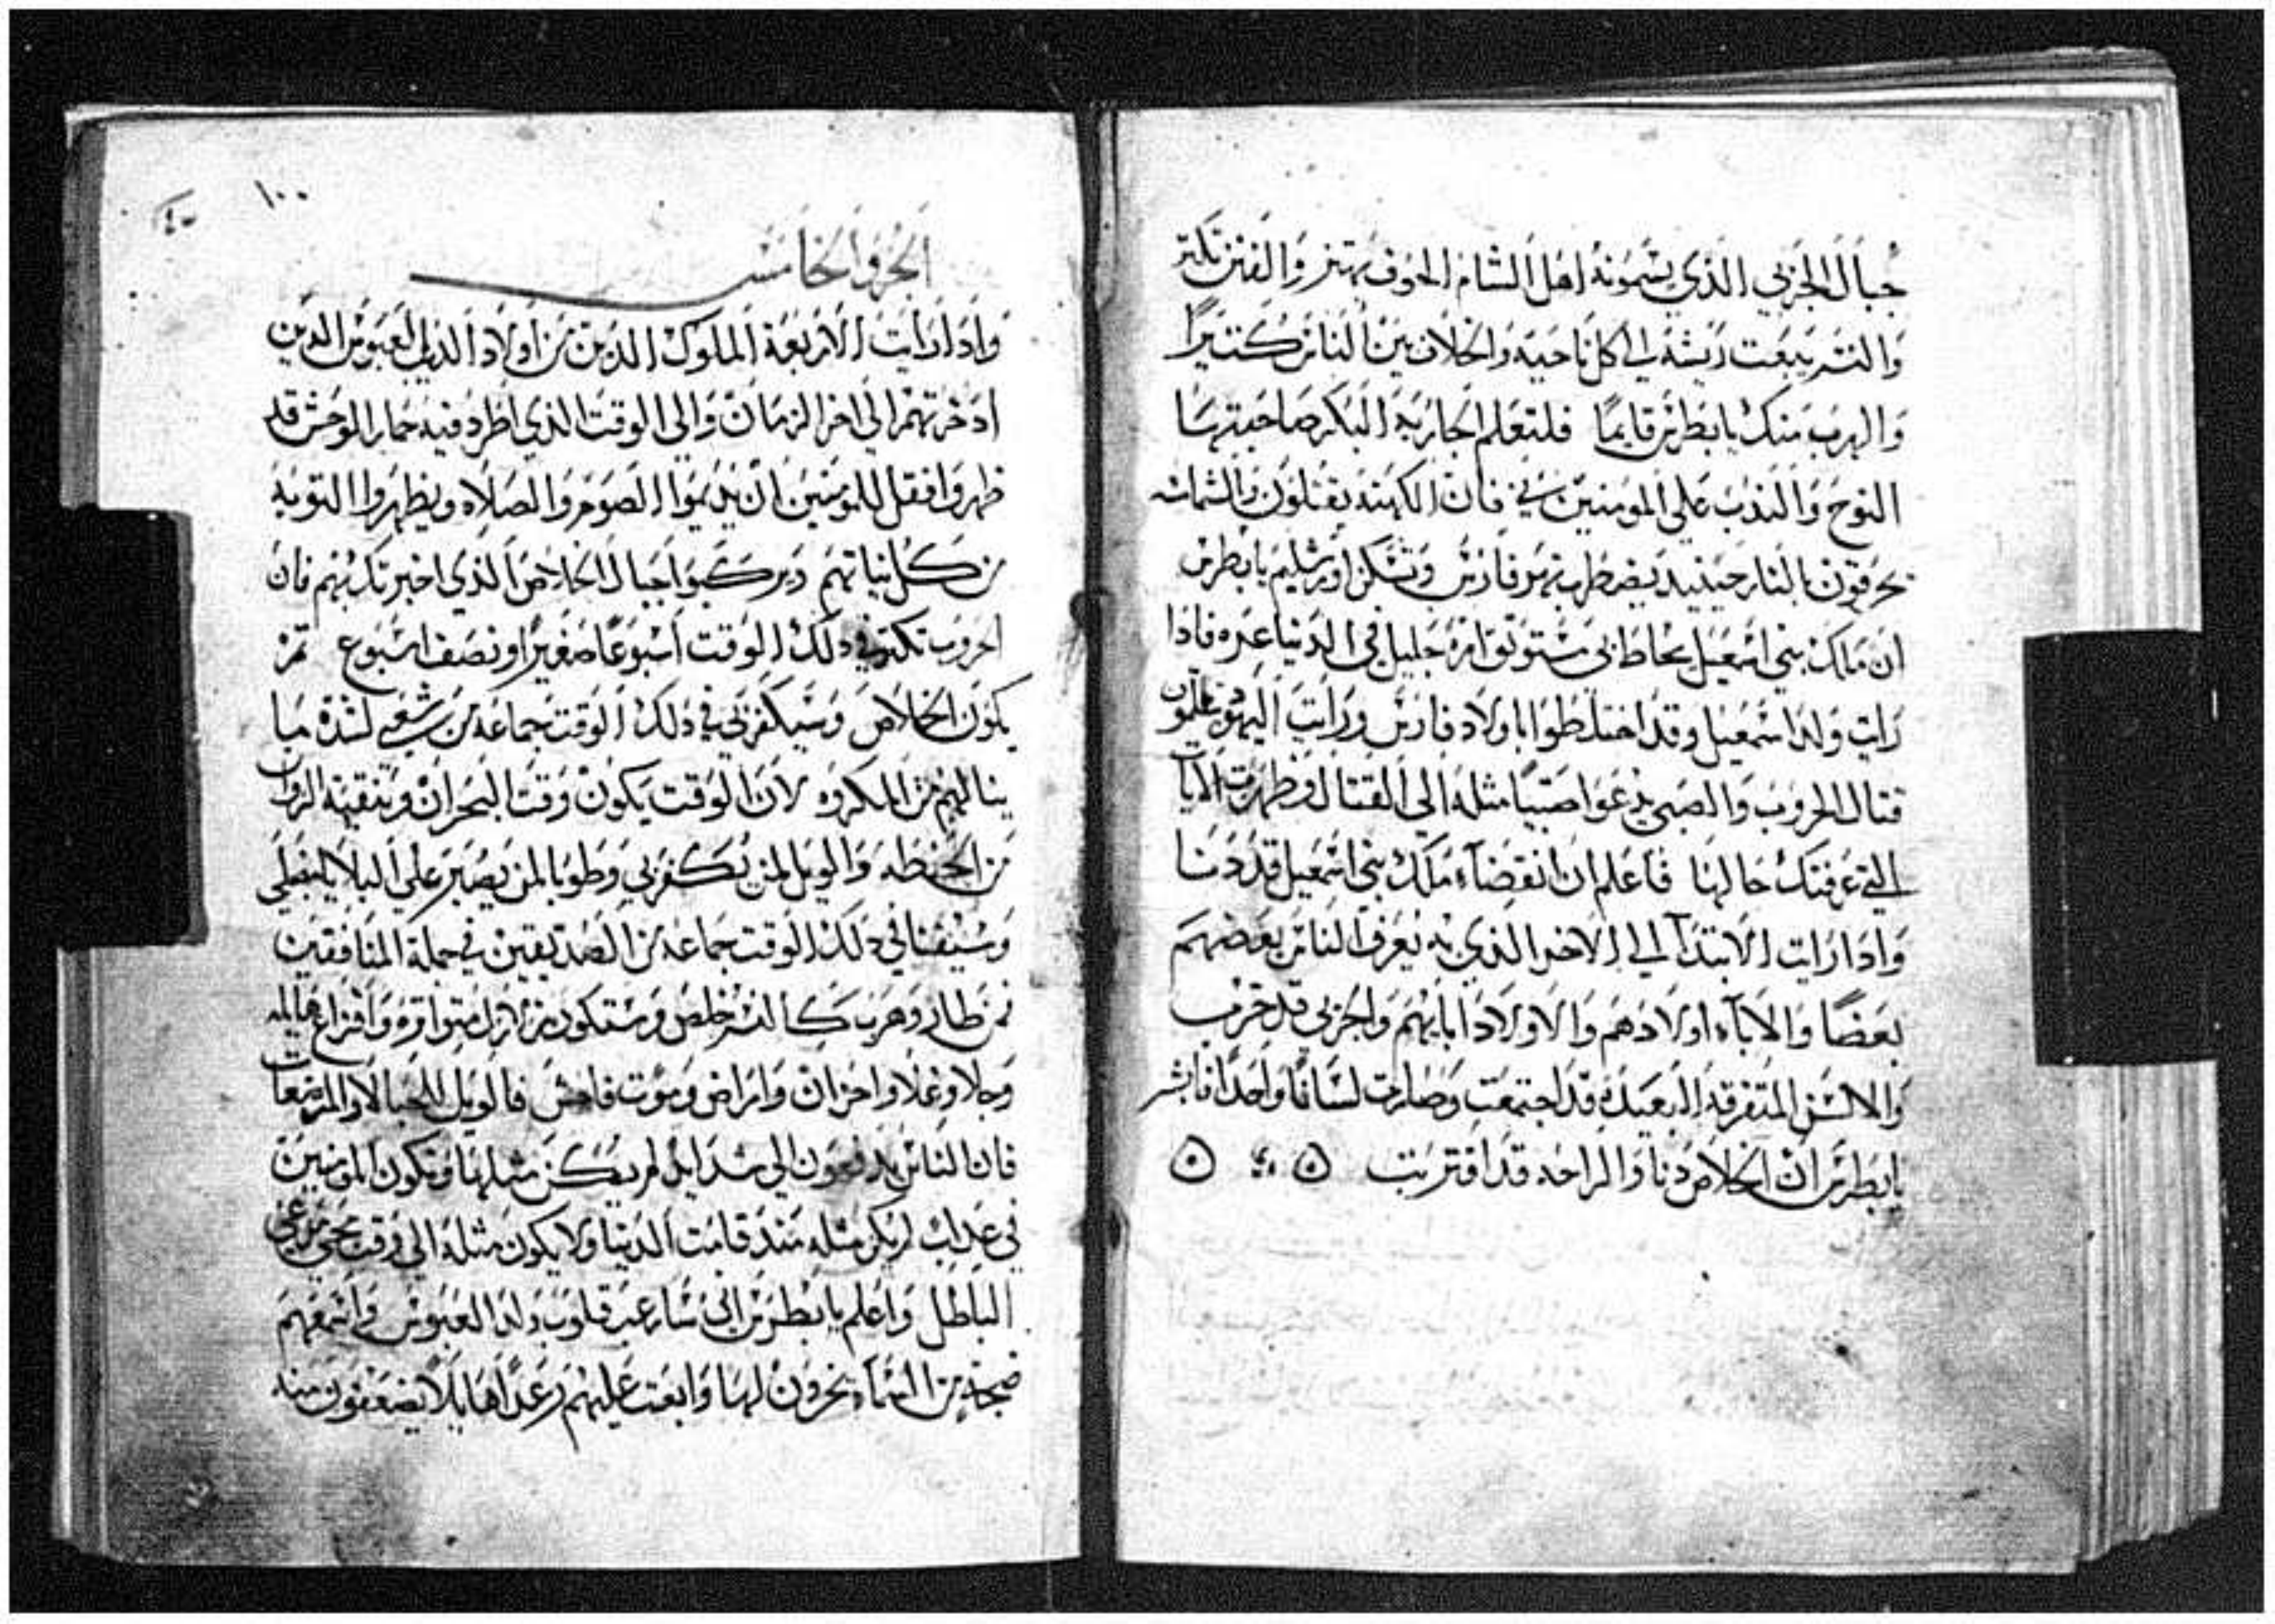 جبال الجزبي الذي يسمونه اهل الشام الحوف يهتز والفتن تكتر
والنسر يبعت ريشه الى كل ناحيه والخلاف بين الناس كتيرًا
والهرب منك يا بطرس قايمًا فلتعلم الجاريه البكر صاحبتها
النوح والندب على المومنين بي فان الكهنه يقتلون والشمامسه
يحرقون بالنار حينيد يضطرب نهر فارس وتسكن اورشليم يا بطرس
ان ملك بني اسمعيل يحاط بي امره جليل في الدنيا عبره فاذا
رايت ولد اسمعيل وقد اختلطوا باولاد فارس ورايت اليهود يتعلمون
قتال الحروب والصبي يدعوا صبيًا مثله الى القتال وظهرت الايات
التي عرفتك حالها فاعلم ان انقضاء ملك بني اسمعيل قد دنا
واذا رايت الابتدآ الى الاخر الذي به يعرف الناس بعضهم
بعضًا والابآء اولادهم والاولاد ابايهم والجزبي قد خرب
والالسن المتفرقه البعيده قد اجتمعت وصارت لسانًا واحدًا فابشر
يا بطرس ان الخلاص دنا والراحه قد اقتربت
١٠٠
٤٠
الجزو الخامس
واذا رايت الاربعة الملوك الذين من اولاد الذيل العبوس الذين
ادخرتهم الى اخر الزمان والى الوقت الذي اطرد فيه حمار الوحش قد
ظهروا فقل للمومنين ان يديموا الصوم والصلاه ويظهروا التوبة
من كل نياتهم ويركبوا جبال الخلاص الذي اخبرتك بهم فان
الحروب تكتر في ذلك الوقت اسبوعًا صغيرًا او نصف اسبوع تم
يكون الخلاص وسيكفر بي في ذلك الوقت جماعه من شعبي لشدة ما
ينالهم من المكروه لان الوقت يكون وقت البحران وتنقية الزوان
من الحنطه والويل لمن يكفر بي وطوبا لمن يصبر على البلايا
وسيفنا في ذلك الوقت جماعه من الصديقين في جملة المنافقين
فمن طار وهرب كالنسر خلص وستكون زلازل متواتره وافزاع هايله
وجلا وغلا واحزان وامراض وموت فاحش فالويل للحبالا والمرضعات
فان الناس يدفعون الى شدايد لم يكن مثلها وتكون المومنين
في عذاب لم يكن مثله منذ قامت الدنيا ولا يكون مثله الى وقت
الباطل واعلم يا بطرس اني سارعب قلوب ولد العبوس واسمعهم
ضجة من السماء يخرون لها وابعت عليهم رعدًا هايلًا يضعفون منه